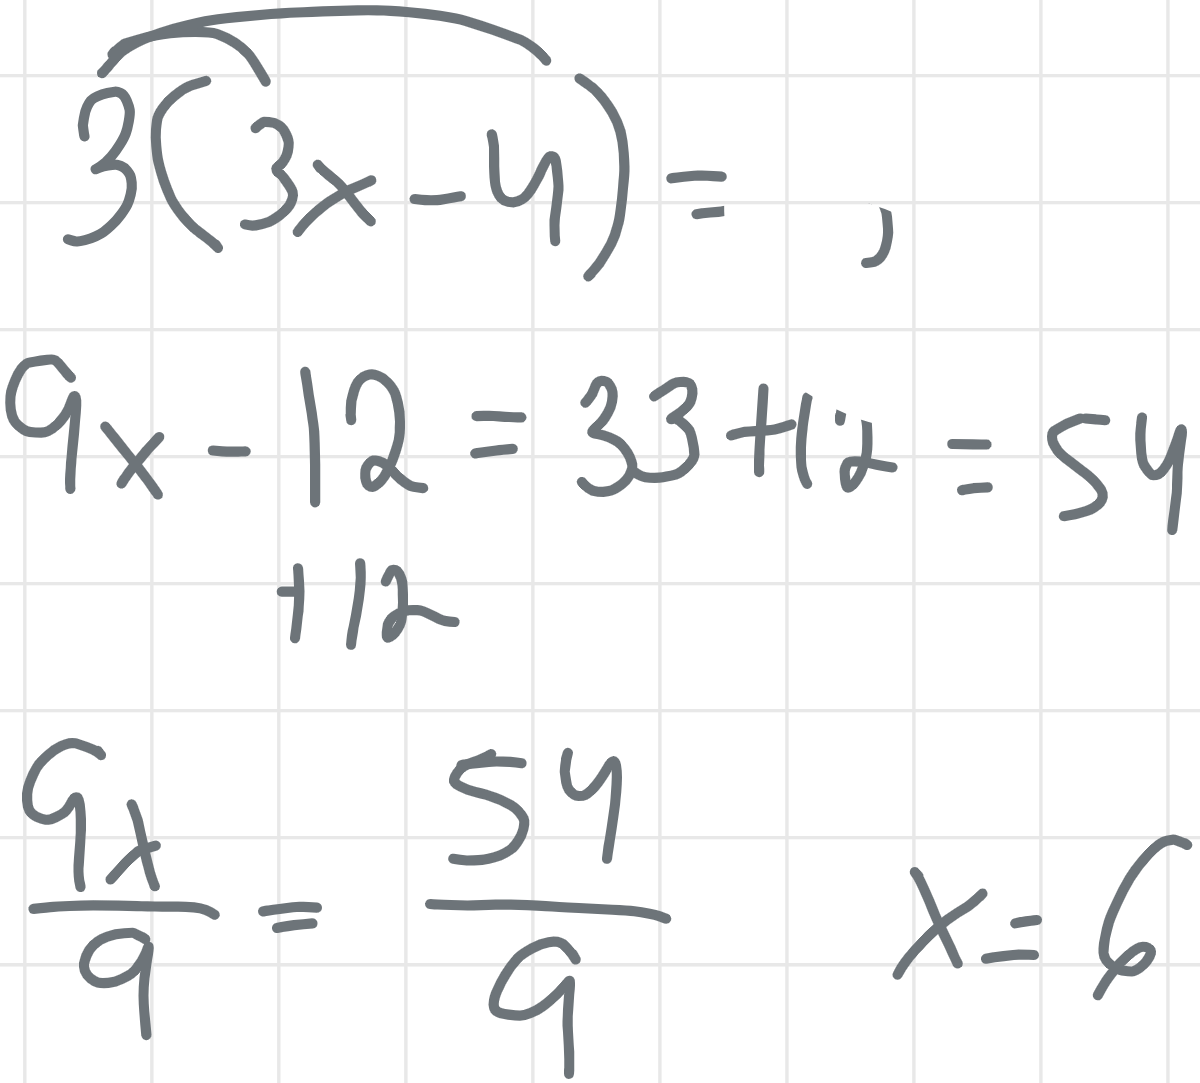 3(3x-4)= ,
9x-12=33+12=54
+12
9x/9 = 54/9 x=6